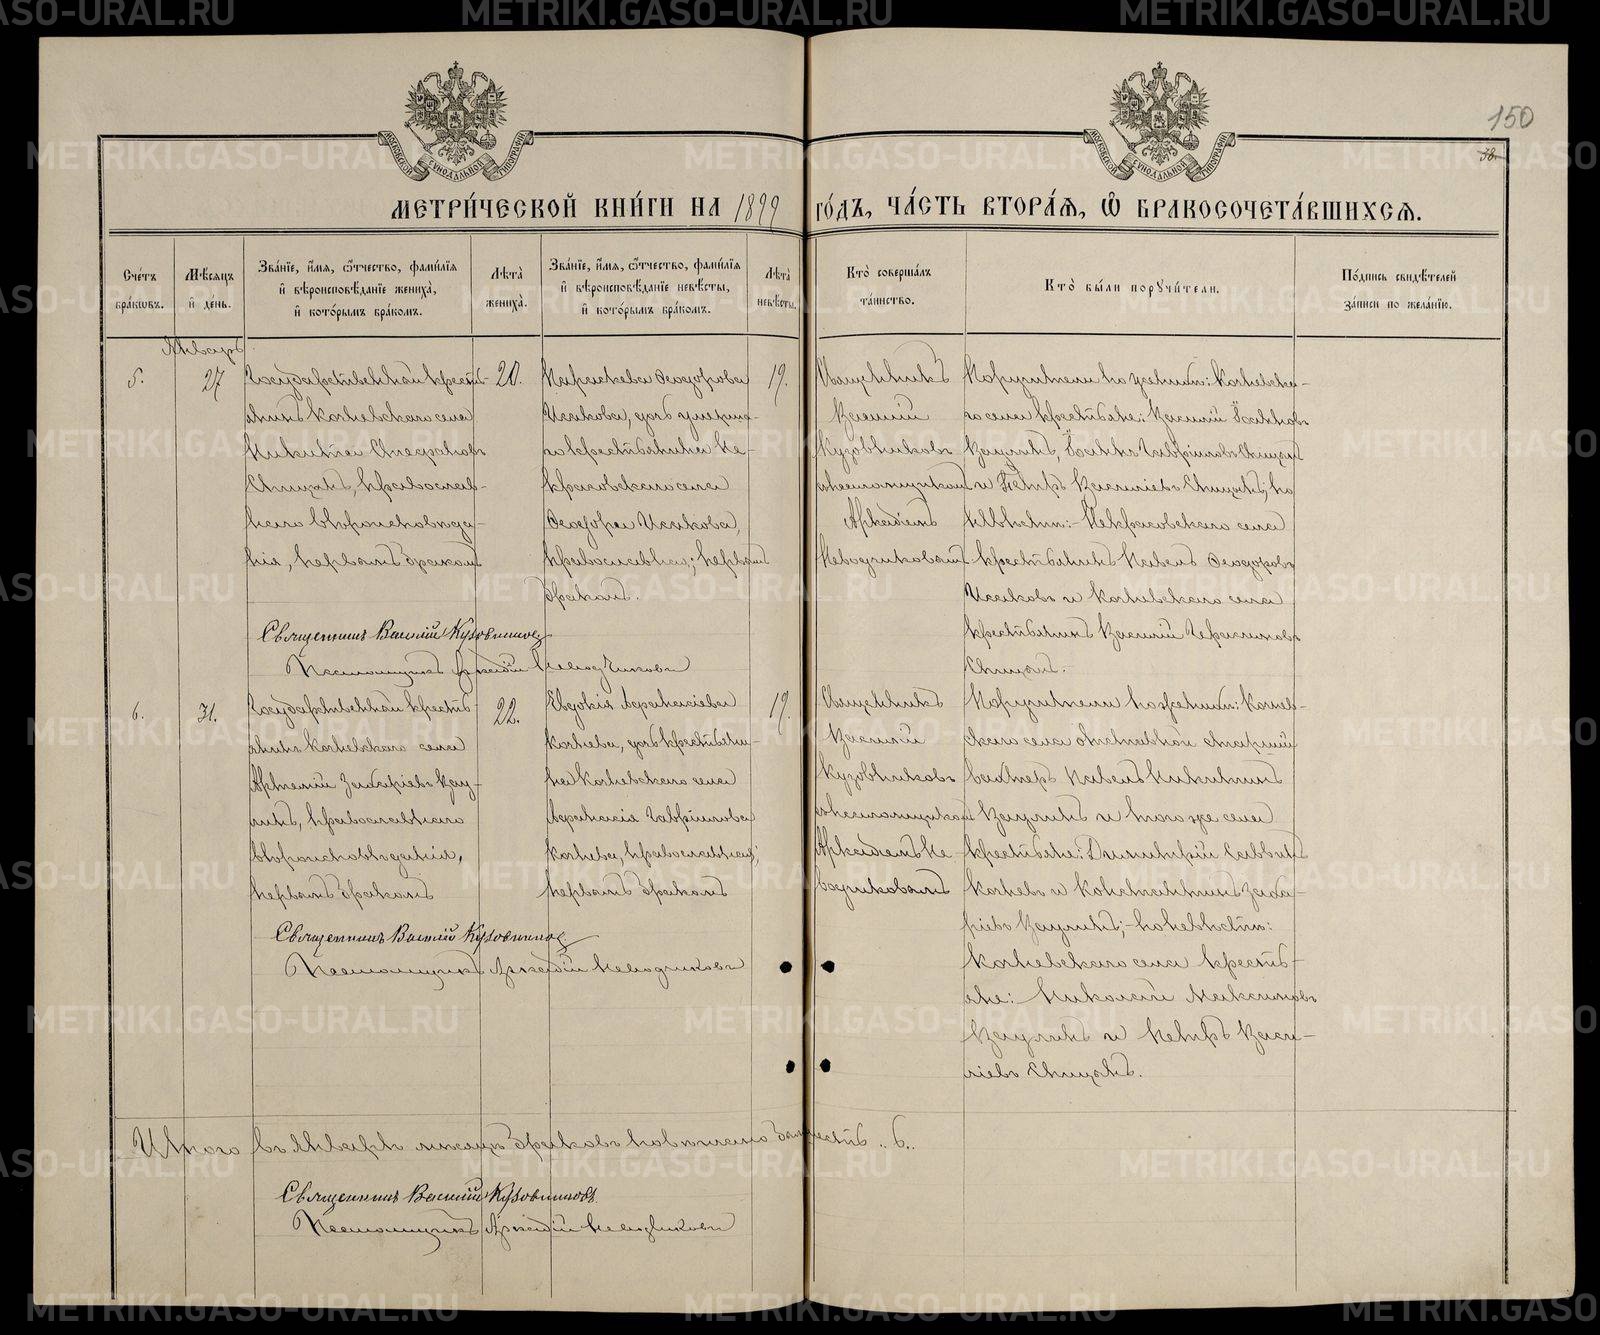 150
38.
МЕТРИ́ЧЕСКОЙ КНИ́ГИ НА 1899 ГО́ДЪ, ЧА́СТЬ ВТОРА́Я, Ѡ БРАКОСОЧЕТА́ВШИХСЯ.
Сче́тъ бра́кѡвъ.
Мѣ́сяцъ и҆ де́нь.
Зва́нїе, и҆́мя, ѻ҆́тчество, фами́лїя и҆ вѣроисповѣ́данїе жениха̀, и҆ кото́рымъ бра́комъ.
Лѣ́та жениха̀.
Зва́нїе, и҆́мя, ѻ҆́тчество, фами́лїя и҆ вѣроисповѣ́данїе невѣ́сты, и҆ кото́рымъ бра́комъ.
Лѣ́та невѣ́сты.
Кто̀ соверша́лъ та́инство.
Кто̀ бы́ли порꙋчи́тели.
По́дпись свидѣ́телей за́писи по жела́нїю.
Январь
5.
27
Государственный кресть-
янинъ Кочневскаго села
Никита
православ-
наго вѣроисповѣда-
нія, первымъ бракомъ
20.
Параскева Ѳеодорова
Исакова, дочь умерша-
го крестьянина Не-
красовскаго села
Ѳеодора Исакова,
православная; первымъ
бракомъ.
19.
Священникъ
Василій
Кузовниковъ
съ псаломщикомъ
Аркадіемъ
Неводчиковымъ
Поручители по женихѣ: Кочневска-
го села крестьяне: Василій
и Петръ Василіевъ по
невѣстѣ: Некрасовскаго села
крестьянинъ Павелъ Ѳеодоровъ
Исаковъ и Кочневскаго села
крестьянинъ Василій
Священникъ Василій Кузовников
Псаломщикъ Аркадій Неводчиковъ
6.
31.
Государственный кресть-
янинъ Кочневскаго села
Артемій Захаріевъ Вау-
линъ, православнаго
вѣроисповѣданія,
первымъ бракомъ
22.
Евдокія Аѳанасіева
Кочнева, дочь крестьяни-
на Кочневскаго села
Аѳанасія Гавріилова
Кочнева, православная;
первымъ бракомъ
19.
Священникъ
Василій
Кузовниковъ
съ псаломщикомъ
Аркадіемъ Не-
водчиковымъ
Поручители по женихѣ: Кочнев-
скаго села отставной старшій
Павелъ Никитинъ
Ваулинъ и того же села
крестьяне: Димитрій Саввинъ
Кочневъ и Константинъ Заха-
ріевъ Ваулинъ; по невѣстѣ:
Кочневскаго села кресть-
яне: Николай Максимовъ
Ваулинъ и Петръ Васи-
ліевъ
Священникъ Василій Кузовников
Псаломщикъ Аркадій Неводчиковъ
Итого въ Январѣ мѣсяцѣ браковъ повѣнчано шесть „6„
Священникъ Василій Кузовниковъ
Псаломщикъ Аркадій Неводчиковъ
METRIKI.GASO-URAL.RU